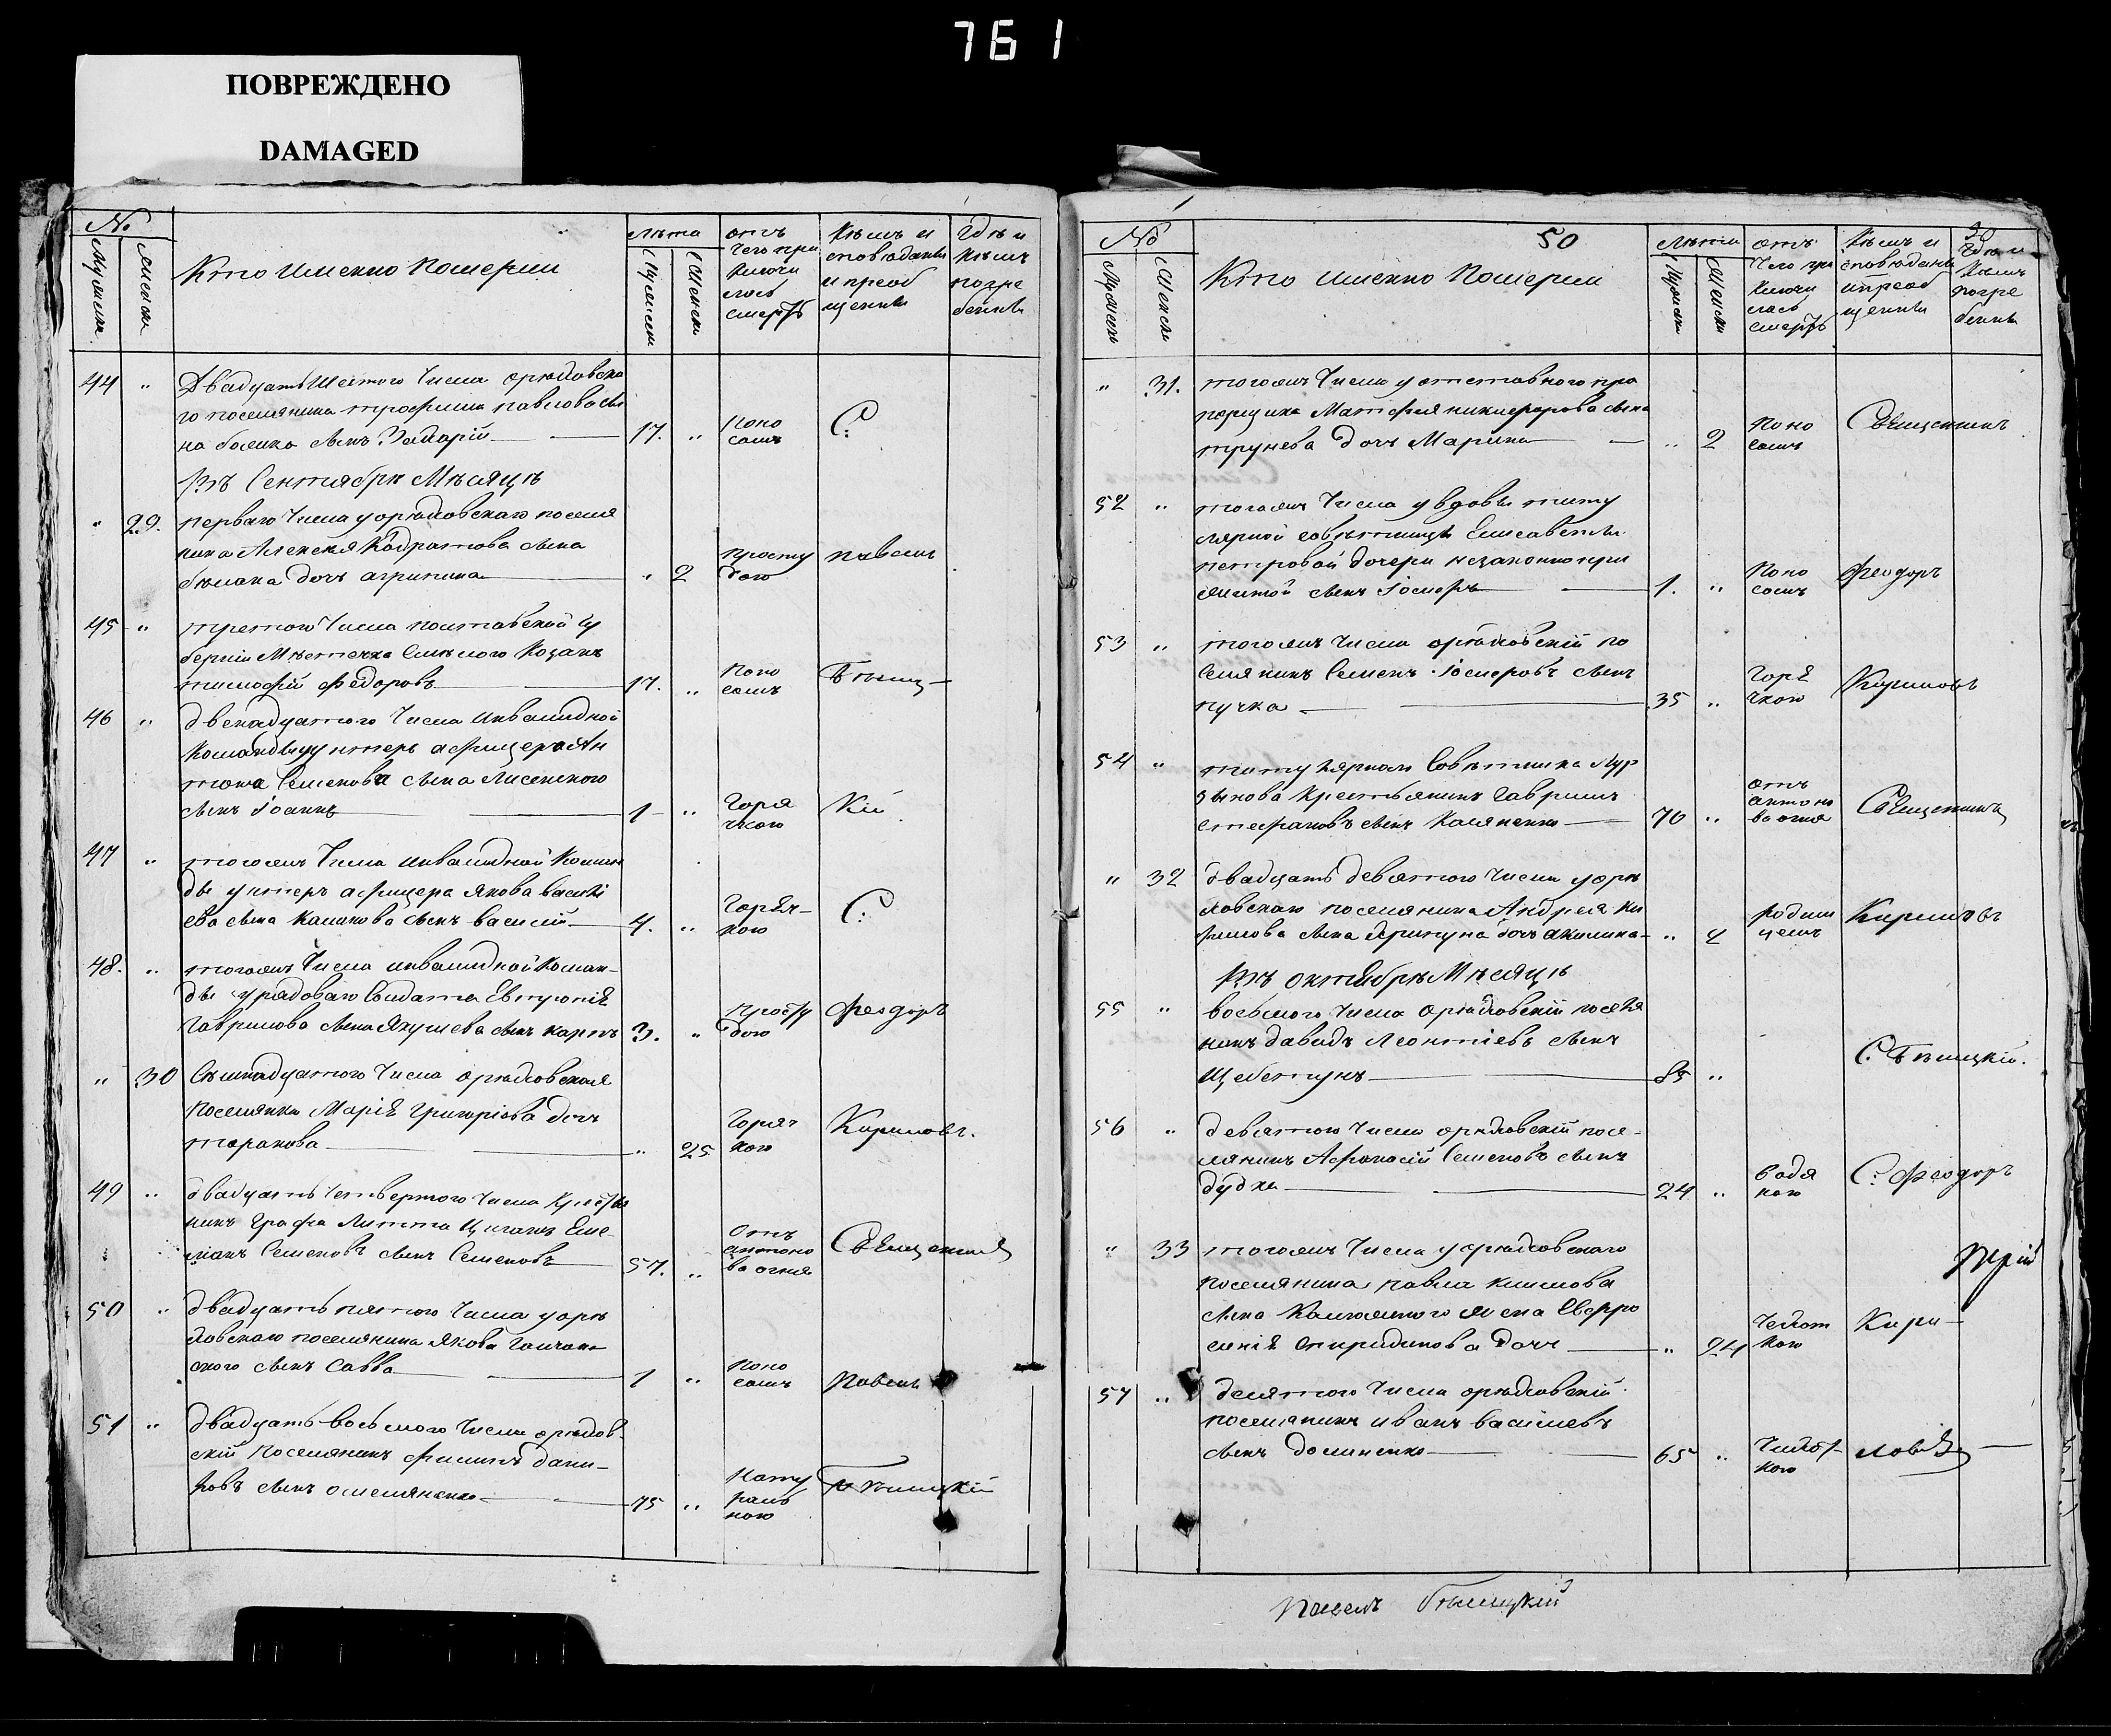 761
ПОВРЕЖДЕНО
DAMAGED
№
мужеска
женска
Кто именно Померли
лѣта
мужеска
женска
отъ
чего при
ключи
лась
смерть
Кѣмъ и
споведаны
и преоб
щенны
Гдѣ и
Кѣмъ
погре
бенны
44 " Двадцать Шестого Числа орѣховска
го поселянина трофима павлова сы
на сынъ Захарій 17. " поно
сомъ С:
Въ Сентябрѣ Мѣсяцѣ
" 29. перваго Числа у орѣховскаго поселя
нина Алексея Кодратова сына
дочь агрипина " 2 просту
дою павелъ
45 " третого Числа полтавской гу
берніи Мѣстечка Смѣлого Козакъ
тимофій федоровъ 17. " поно
сомъ
46 " двенадцатого Числа инвалидной
Команды унтеръ афицера Ан
тона Семенова сына Лисенского
сынъ Іоаннъ 1 " Горя
чкою Кій
47 " тогожъ Числа инвалидной Коман
ды унтеръ афицера якова василі
ева сына сынъ василій 4. " Горяч-
кою С:
48. " тогожъ Числа инвалидной Коман-
ды у рядоваго Солдата
Гаврилова сына сынъ карпъ 3. " просту
дою феодоръ
" 30 Семнадцатого Числа орѣховская
поселянка Марія Григоріева дочь
таранова " 25 Горяч
кою Кириловъ.
49 " двадцать четвертого Числа Крестья
нинъ Графа Литта Циганъ Еме-
лянъ Семеновъ сынъ Семеновъ 57. " Отъ
антоно
ва огня Священникъ
50 " двадцать пятого Числа у орѣ
ховскаго поселянина Якова Гончарн
ского сынъ Савва 1 " поно
сомъ Павелъ
51 " двадцать восьмого Числа орѣхов-
скій поселянинъ филипъ дани-
ловъ сынъ омеляненко 75 " Нату
раль
ною
№
мужеска
женска
50
Кто именно Померли
лѣта
мужеска
женска
отъ
чего при
ключи
лась
смерть
Кѣмъ и
споведаны
и преоб
щенны
50
Гдѣ и
Кѣмъ
погре
бенны
" 31. тогожъ Числа у отставного пра
порщика Матфея никифорова сына
трунева дочь Марина " 2 Поно
сомъ Священникъ
52 " тогожъ Числа у вдовы титу
лярной совѣтницы Елисаветы
петровой дочери незаконно при
житой сынъ Іосифъ 1. " Поно
сомъ феодоръ
53 " тогожъ Числа орѣховскій по
селянинъ Семенъ Іосифовъ сынъ
пучка 35 " Горя
чкою Кириловъ
54 " титулярнаго Совѣтника
Крестьянинъ Гаврилъ
стефановъ сынъ Касяненко 70 " отъ
антоно
ва огня Священникъ
" 32 двадцать девятого Числа у орѣ
ховскаго поселянина Андрея
сына дочь акилина " роди
мцемъ Кириловъ
Въ октябрѣ Мѣсяцѣ
55 " восьмого Числа орѣховскій поселя
нинъ давидъ Леонтіевъ сынъ
Щебетунъ 85 " С.
56 " девятого Числа орѣховскій посе-
лянинъ Афанасій Семеновъ сынъ
дудка 24 " водя
ною С: феодоръ
" 33 тогожъ Числа у орѣховскаго
поселянина павла климова
сына жена Евфро
синія спиридонова дочь " 24 Чехот
кою Кири-
57 " десятого Числа орѣховскій
поселянинъ иванъ васильевъ
сынъ доминенко 65 " Чихот
кою ловъ
Павелъ